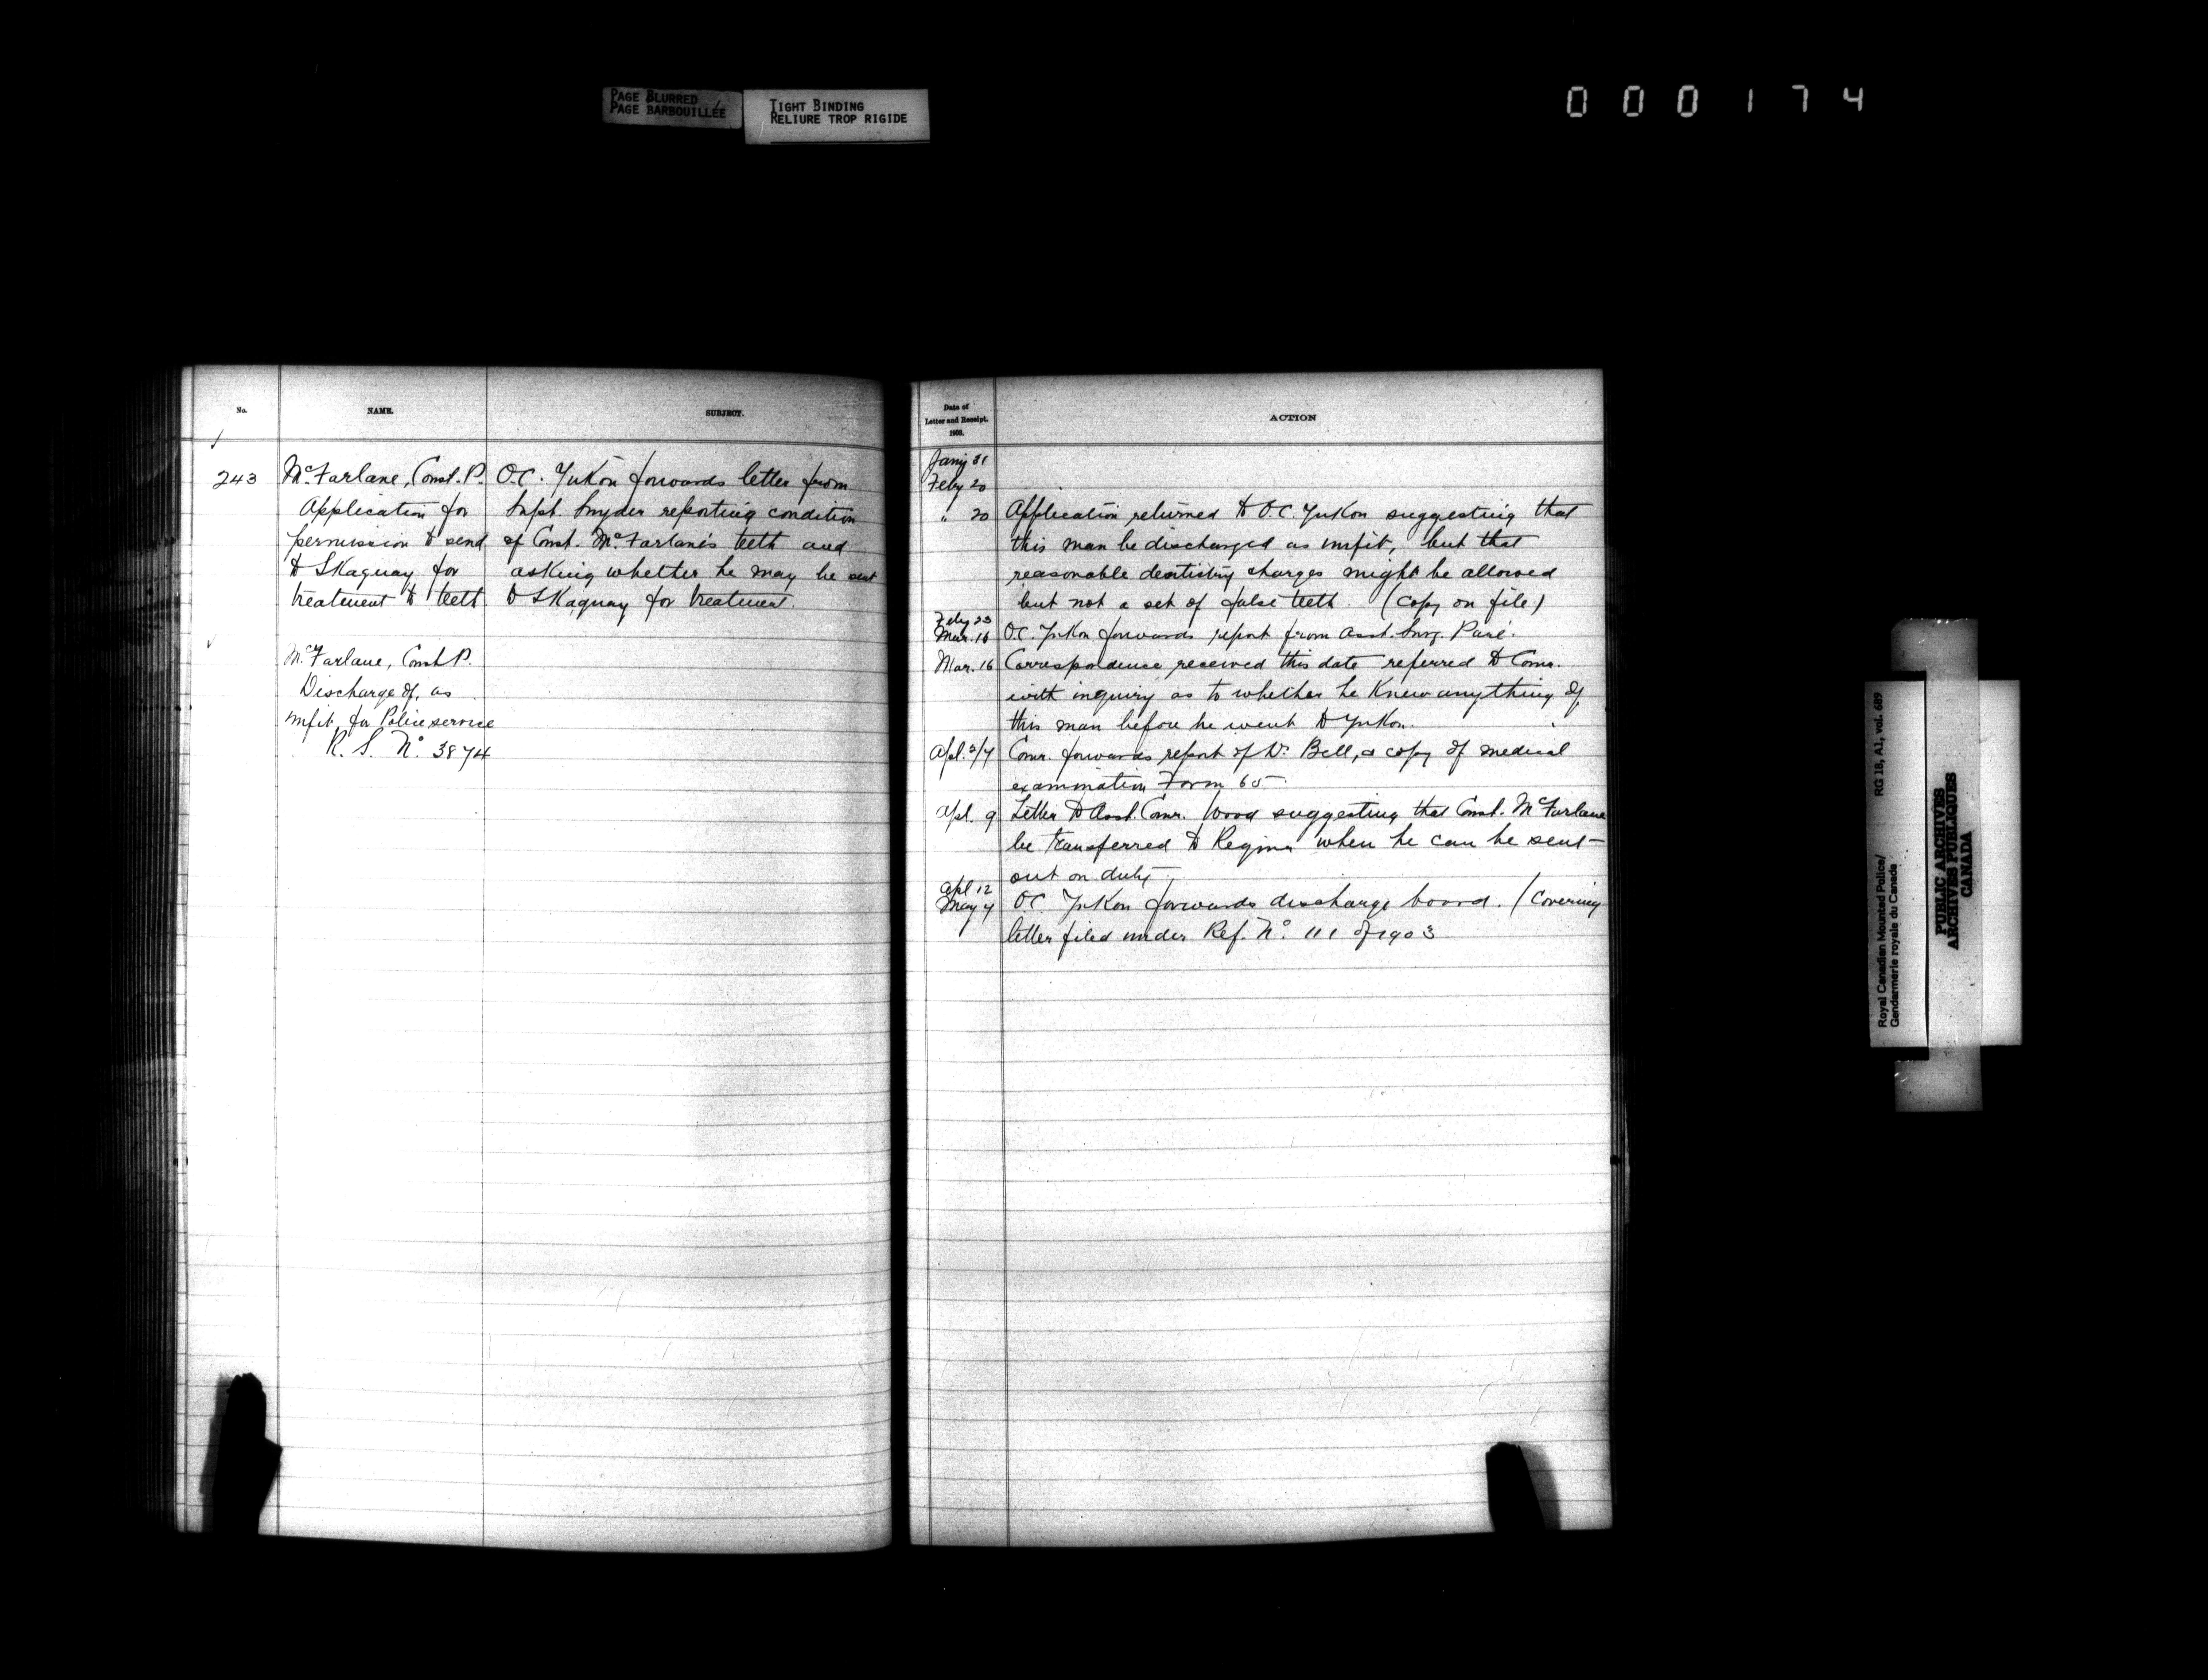 PAGE BLURRED
PAGE BARBOUILLÉE
TIGHT BINDING
RELIURE TROP RIGIDE
000174
No.
NAME.
SUBJECT.
243
McFarlane, Const. P.
Application for
permission to send
to SKaguay for
treatment to teeth
O.C. YuKon forwards letter from
Supt. Snyder reporting condition
of Const. McFarlane's teeth and
asKing whether he may be sent
to SKaguay for treatment.
McFarlane, Const P.
Discharge of, as
unfit for Police service
R. S. No. 3874
Date of
Letter and Receipt.
1903.
ACTION
Jany 31
Feby 20
" 20 Application returned to O.C. YuKon suggesting that
this man be discharged as unfit, but that
reasonable dentistry charges might be allowed
but not a set of false teeth. (Copy on file)
Feby 23
Mar. 16 O.C. YuKon forwards report from Asst. Surg. Paré.
Mar. 16 Correspondence received this date referred to Comr.
with inquiry as to whether he Knew anything of
this man before he went to YuKon.
Apl. 2/7 Comr. forwards report of Dr. Bell, a copy of medical
examination Form 65.
Apl. 9 Letter to Asst. Comr. Wood suggesting that Const. McFarlane
be transferred to Regina when he can be sent
out on duty.
Apl 12
May 4 O.C. YuKon forwards discharge board. (Covering
letter filed under Ref. No. 111 of 1903
Royal Canadian Mounted Police/
Gendarmerie royale du Canada
RG 18, A1, vol. 689
PUBLIC ARCHIVES
ARCHIVES PUBLIQUES
CANADA